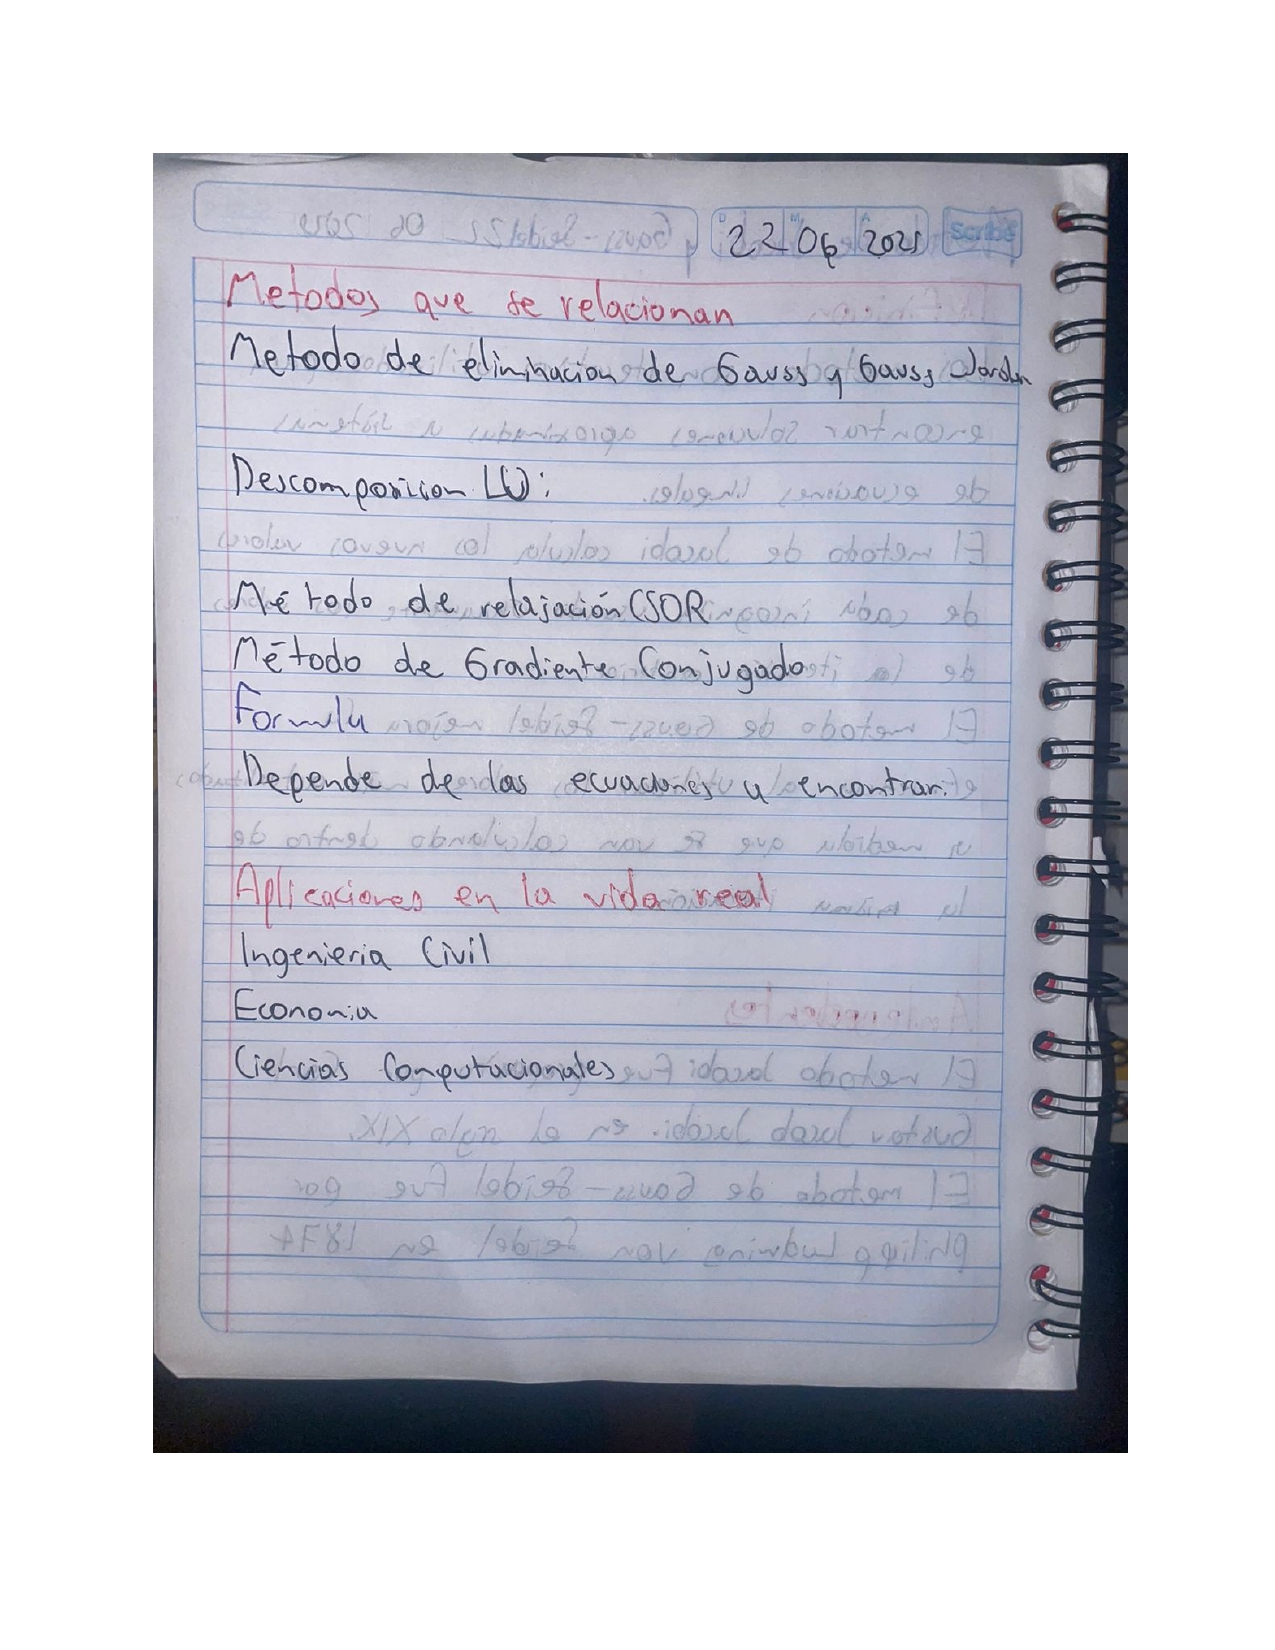 22 06 2025 Scribe
Metodos que se relacionan
Metodo de eliminacion de Gauss y Gauss Jordan
Descomposicion LU:
Método de relajación (SOR
Método de Gradiente Conjugado
Formula
Depende de las ecuaciones a encontrar.
Aplicaciones en la vida real
Ingenieria Civil
Economia
Ciencias Computacionales